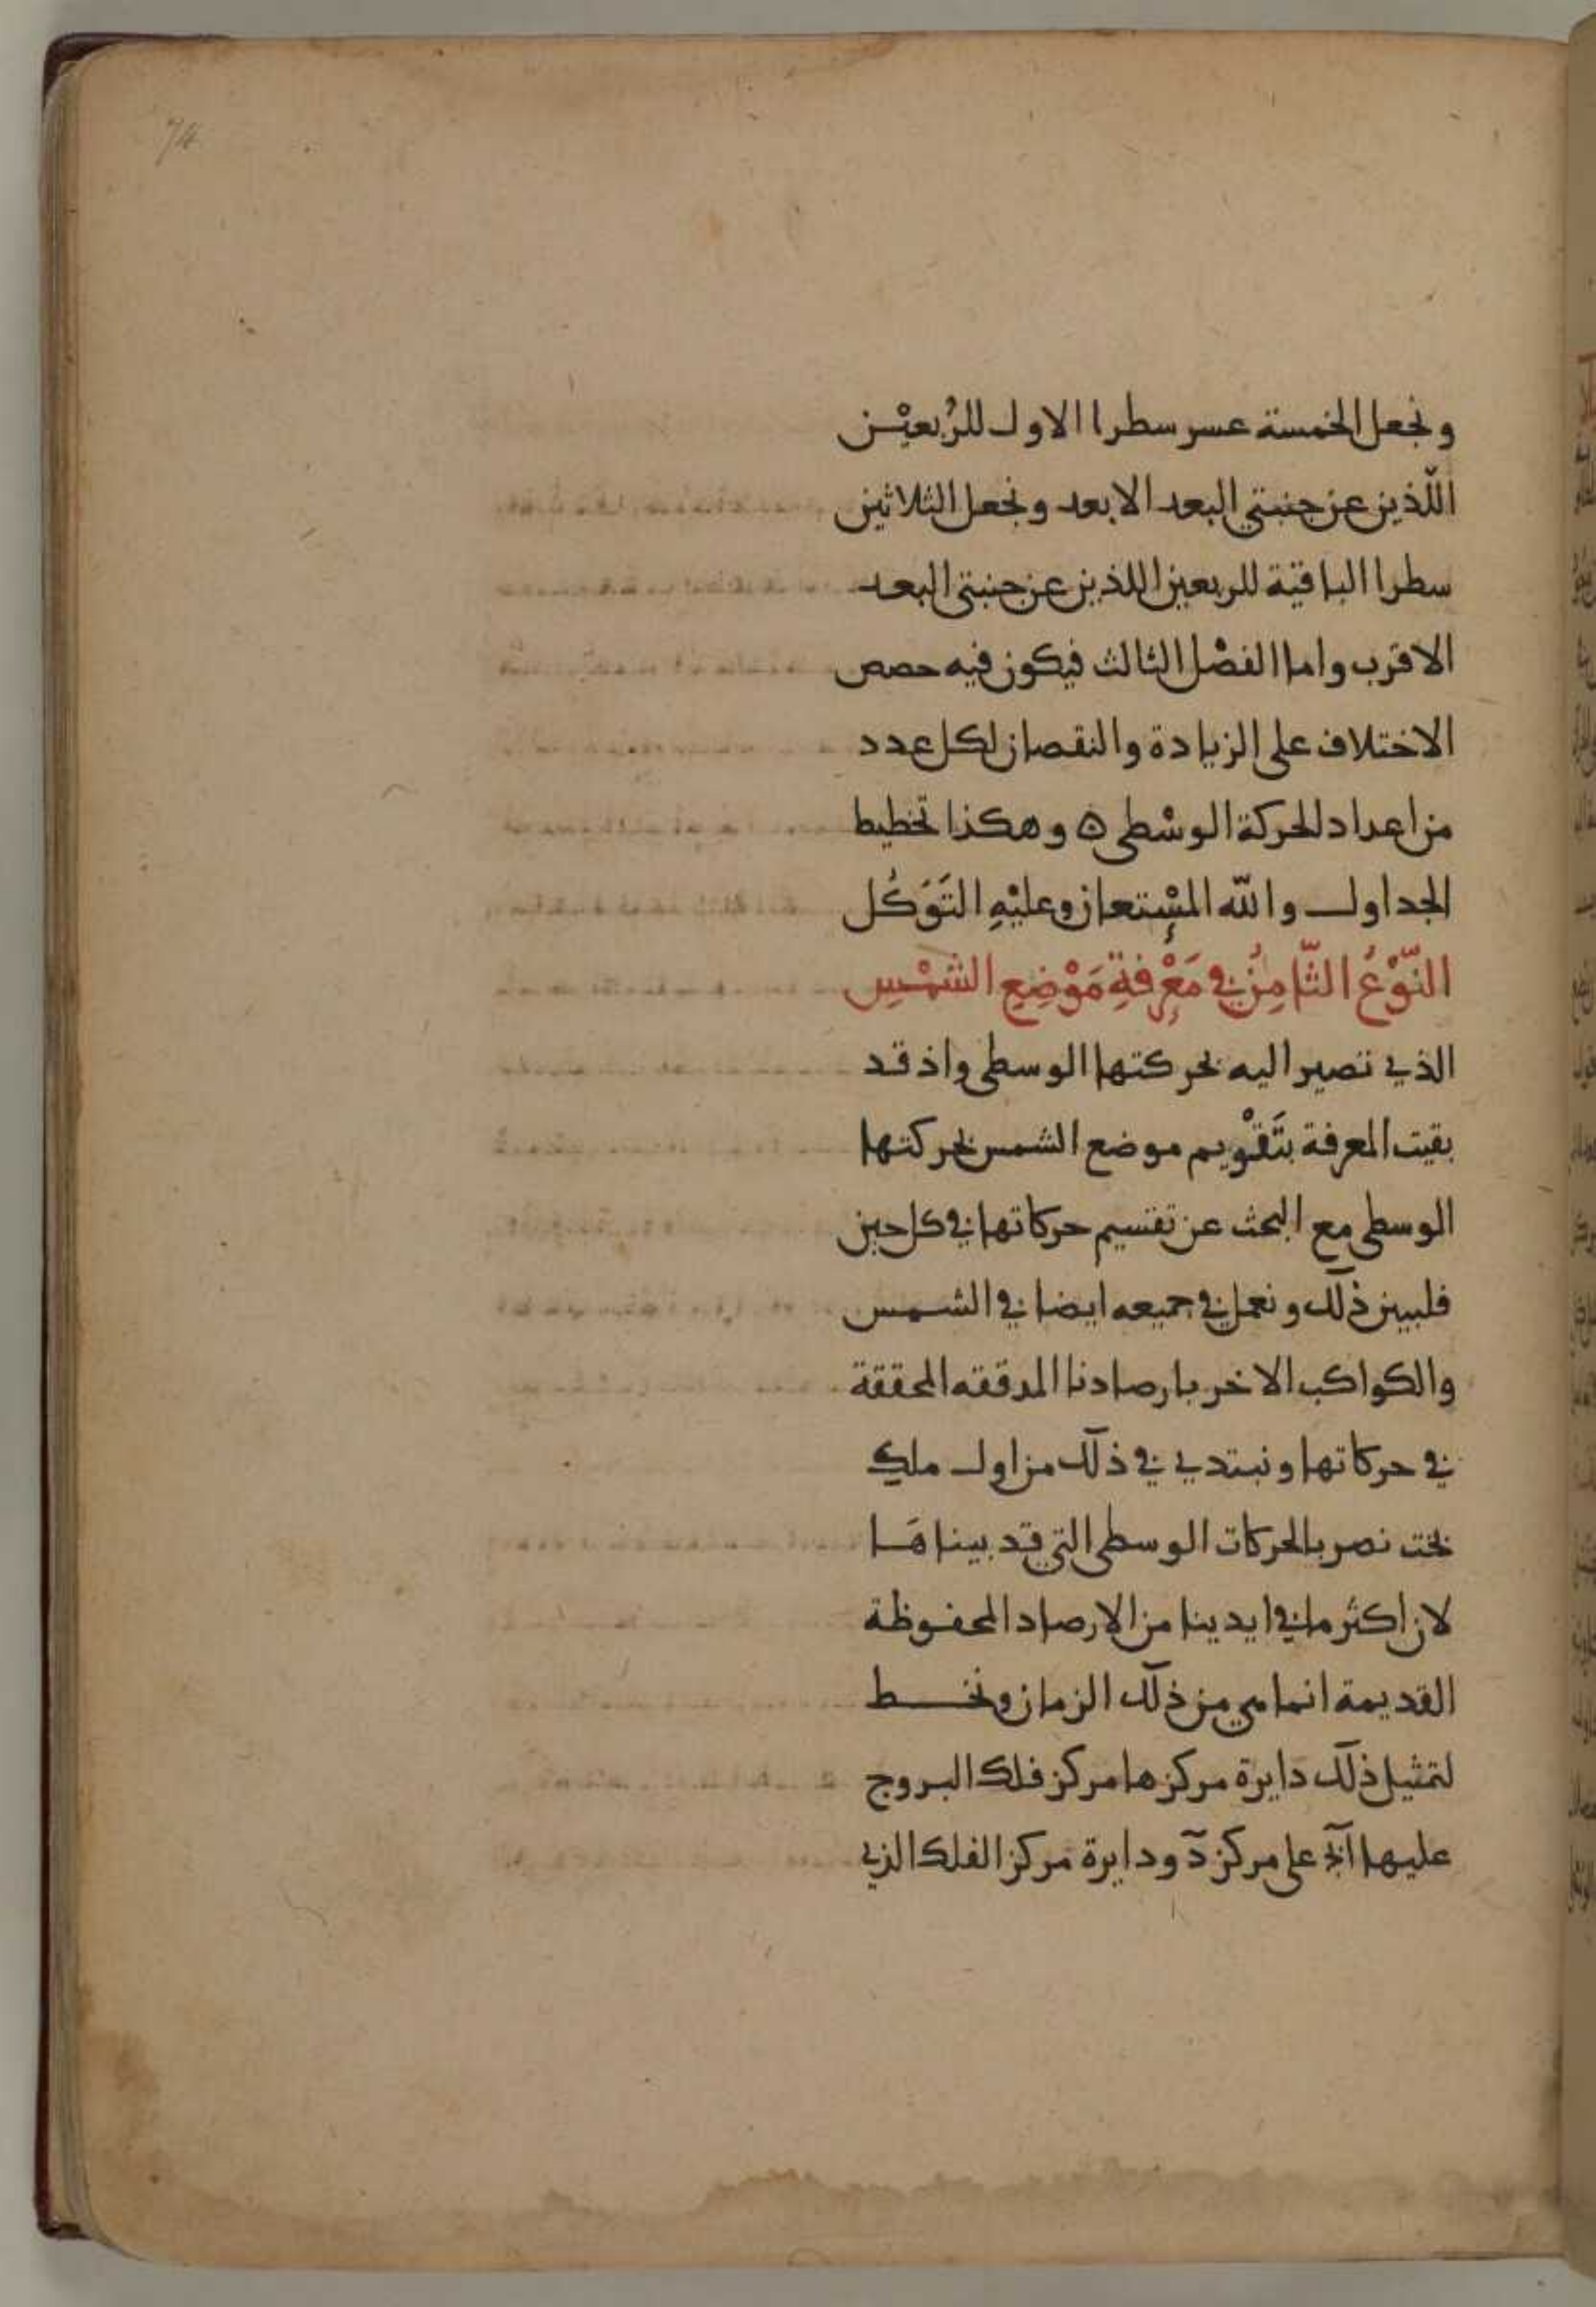 74
ونجعل الخمسة عسر سطرا الاول للرُبعيْن
اللّذين عن جنبتي البعد الابعد ونجعل الثلاثين
سطرا الباقية للربعين اللذين عن جنبتي البعد
الاقرب واما الفصْل الثالث فيكون فيه حصص
الاختلاف على الزيادة والنقصان لكل عدد
من اعداد الحركة الوسْطى ۞ وهكذا تخطيط
الجداول والله المسْتعان وعليْهِ التَوَكُل
النّوْعُ الثّامِنُ في مَعْرِفةِ مَوْضِعِ الشمْسِ
الذي تصير اليه بحركتها الوسطى واذ قد
بقيت المعرفة بتَقْويم موضع الشمس بحركتها
الوسطى مع البحث عن تقسيم حركاتها في كل حين
فلبين ذلك ونعمل في جميعه ايضا في الشمس
والكواكب الاخر بارصادنا المدققه المحققة
في حركاتها ونبتدي في ذلك من اول ملك
بخت نصر بالحركات الوسطى التي قد بيناهَا
لان اكثر ما في ايدينا من الارصاد المحفوظة
القديمة انما هي من ذلك الزمان ونخط
لتمثيل ذلك دايرة مركزها مركز فلك البروج
عليها اَبج على مركز دَ ودايرة مركز الفلك الذي